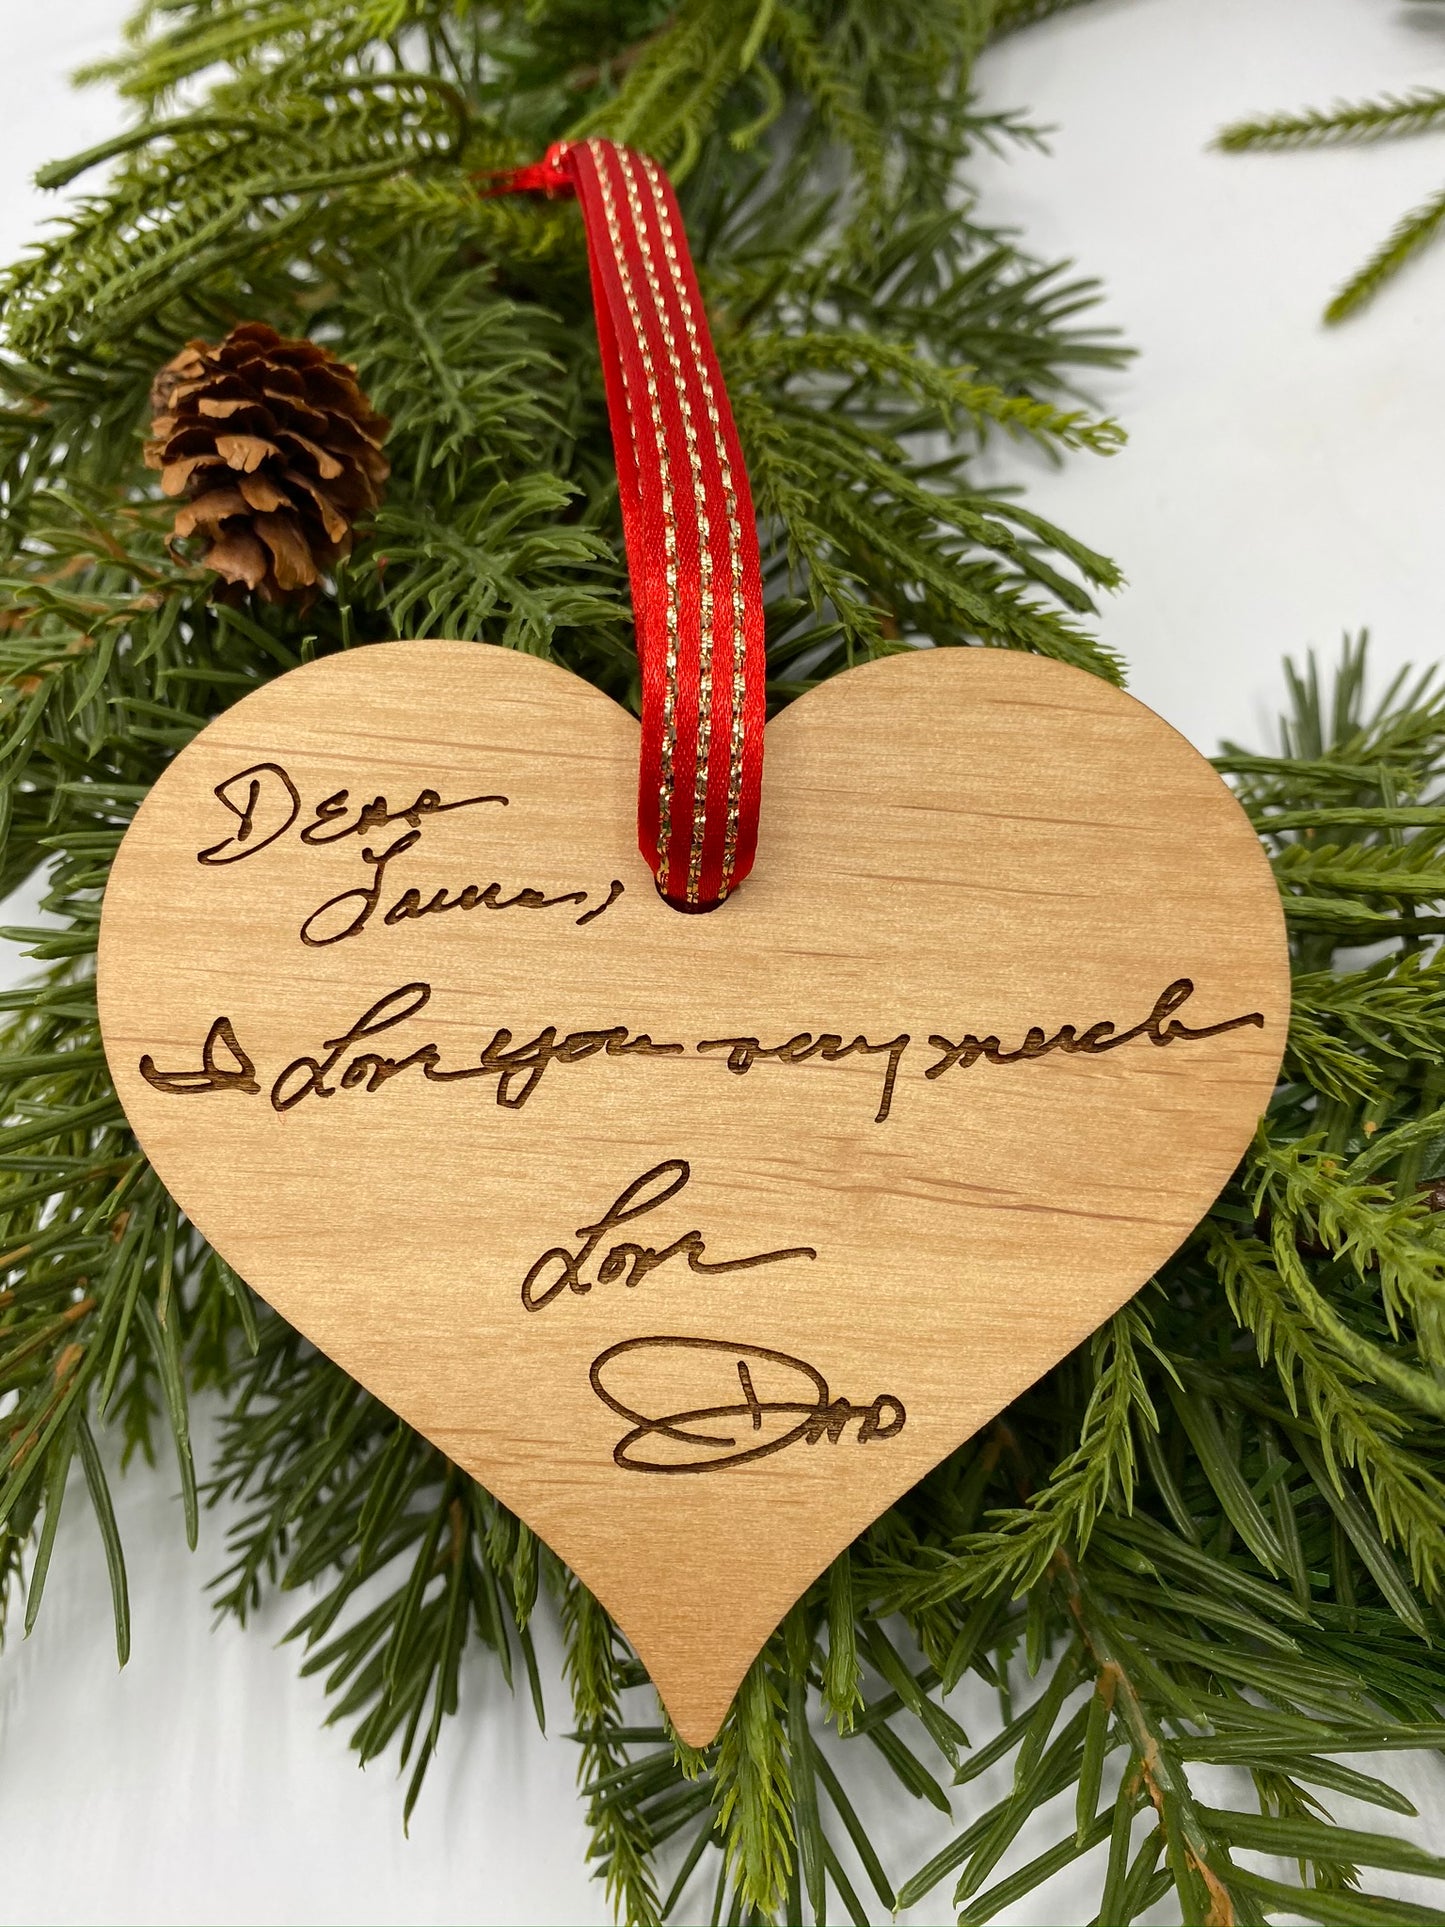 Dear
Laura,
I Love you very much
Love
Dad